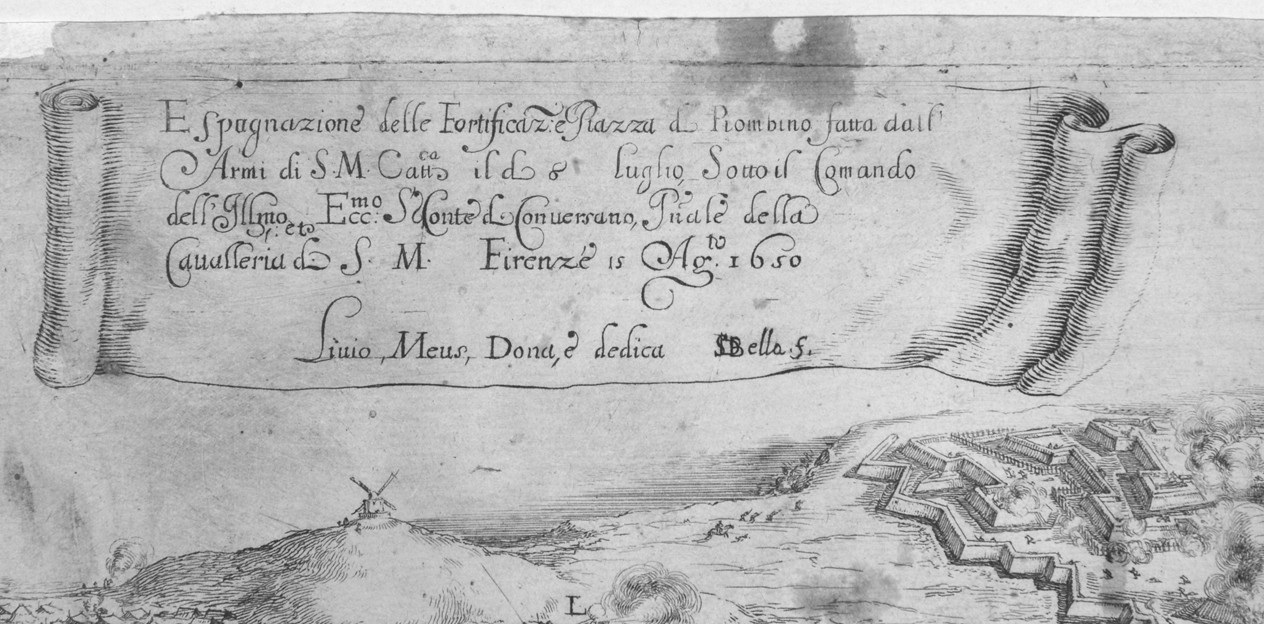 Espugnazione delle Fortificaz.e Piazza di Piombino fatta dall'
Armi di S. M. Catt.ca il di 8 Luglio Sotto il Comando
dell' Illmo, et Ecc.mo S. Conte di Conversano, Gnãle della
Cavalleria di S. M. Firenze 15 Ag.to 1650
Livio, Meus, Dona, è dedica SDBella. f.
L